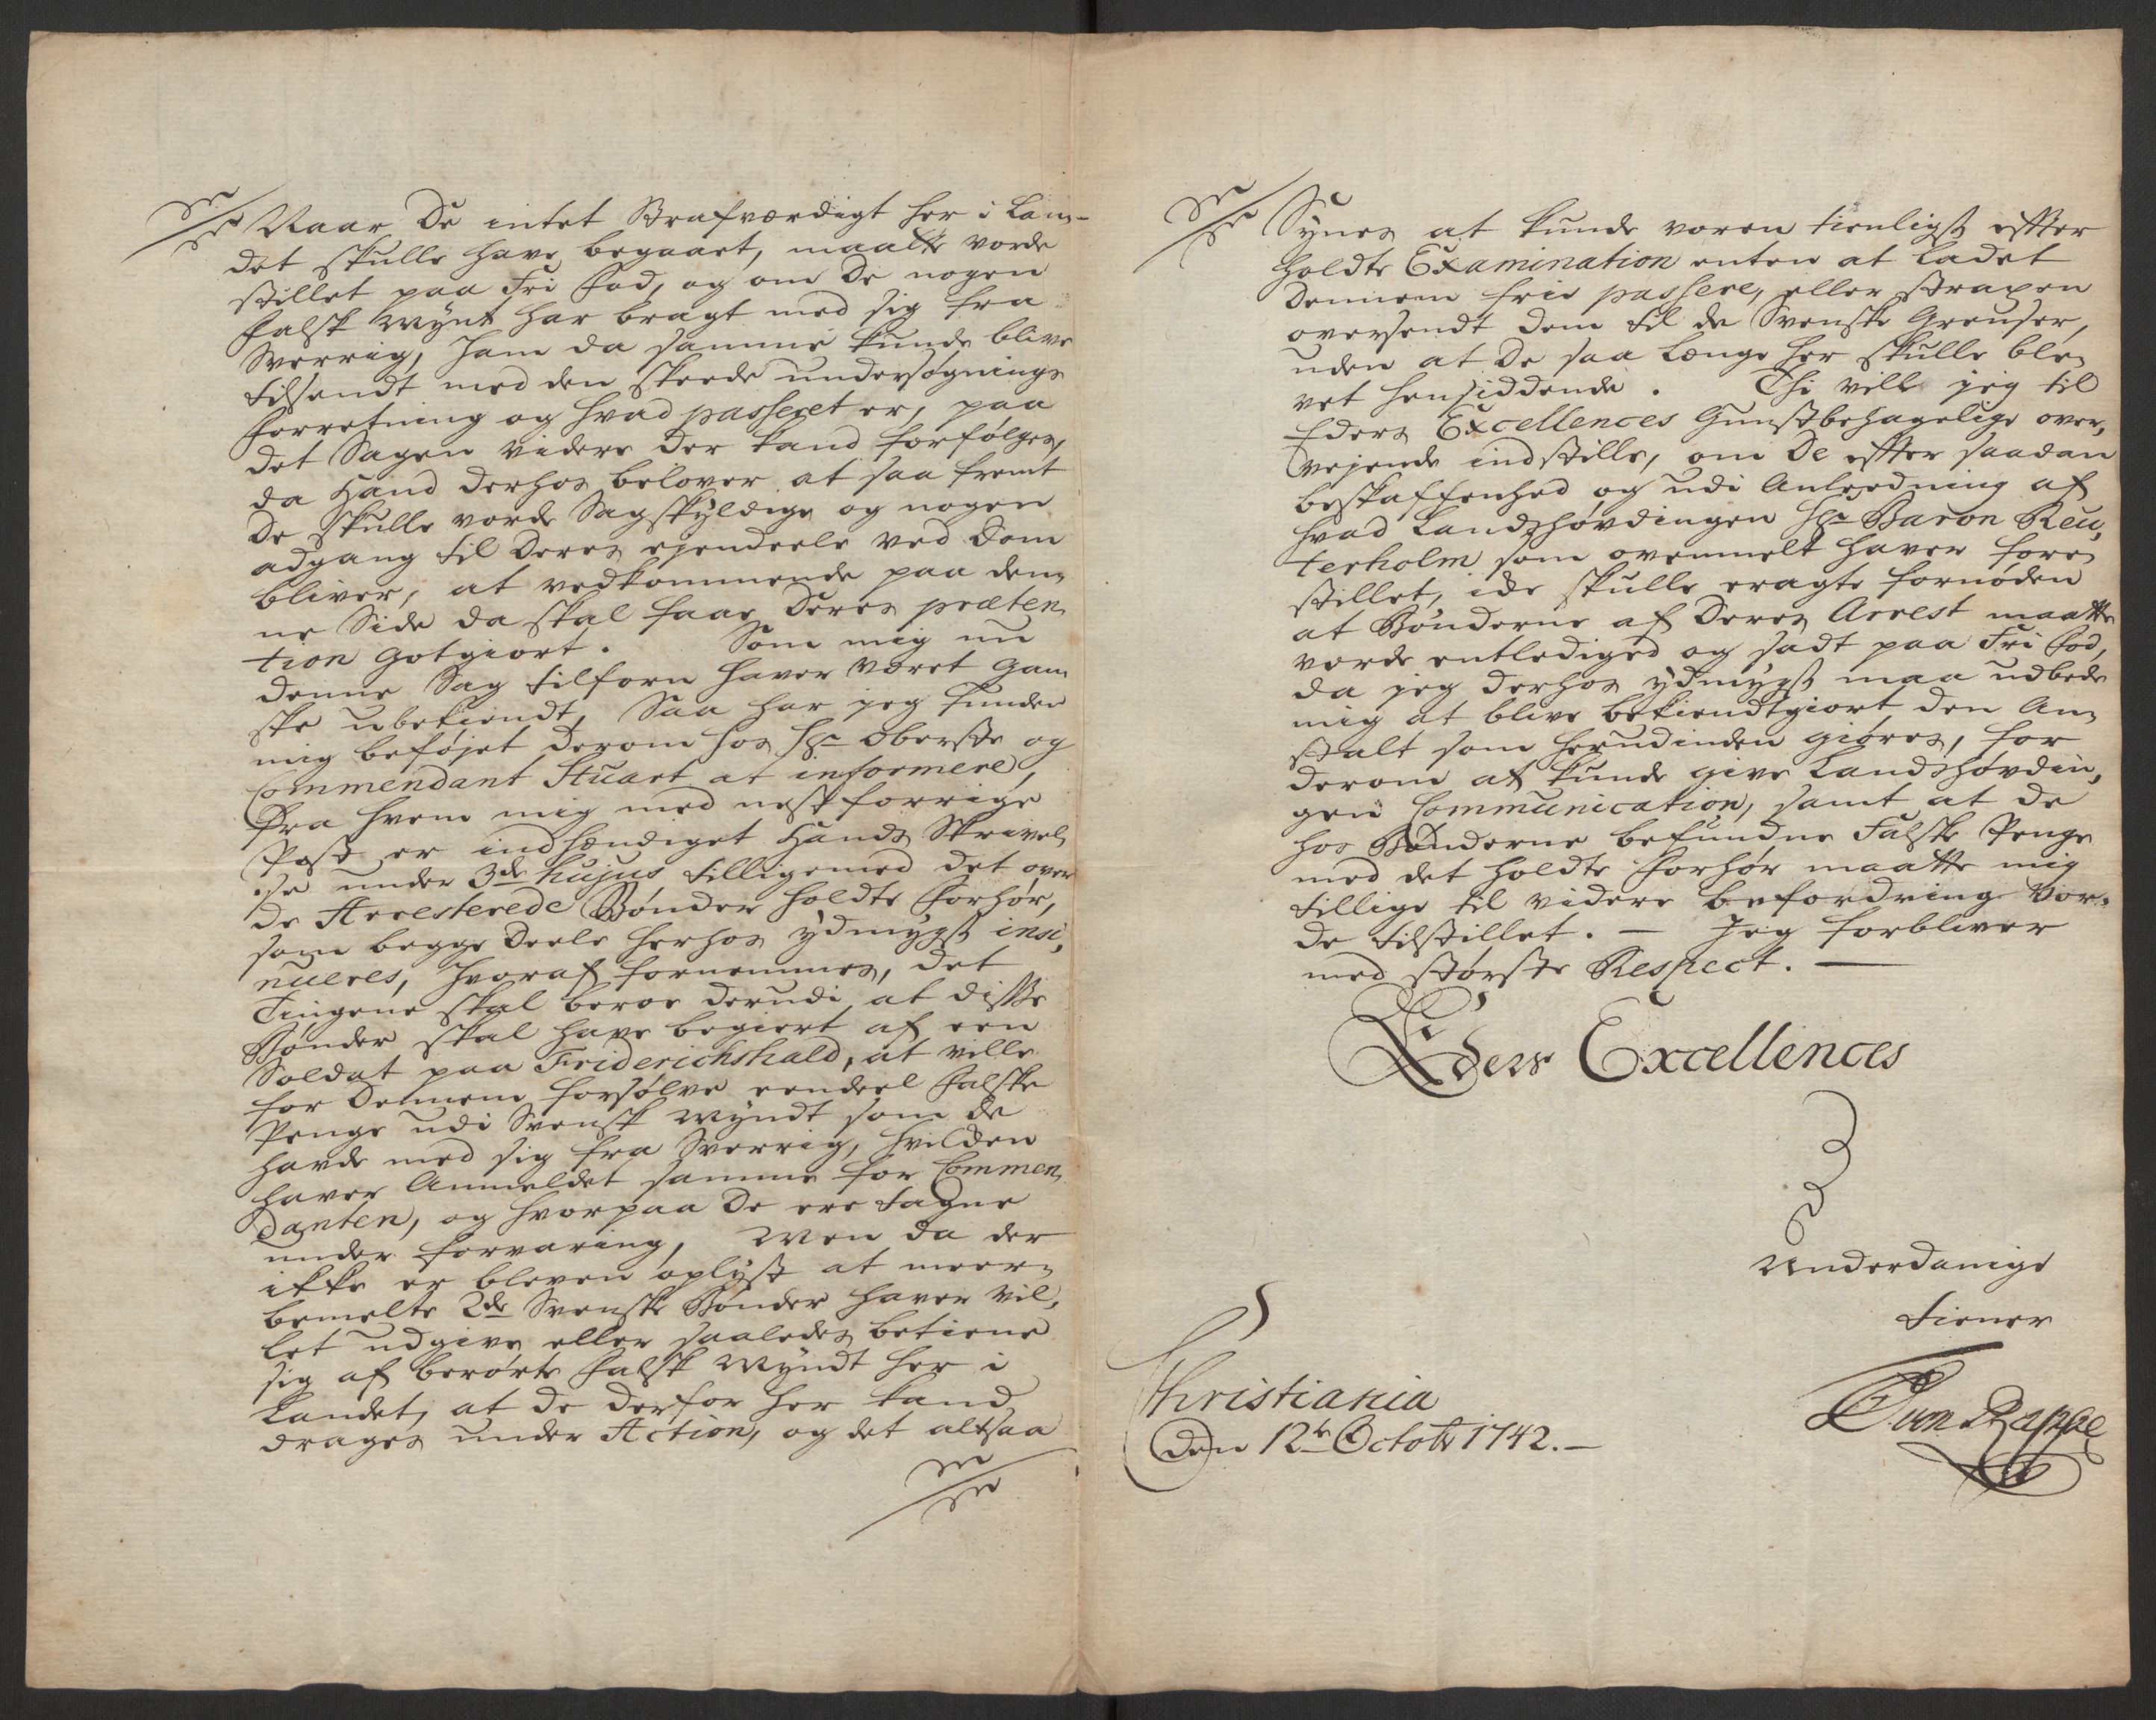 Naar De intet Strafværdigt her i Lan-
det skulle have begaaet, maatte vorde
stillet paa Fri Fod, og om De nogen
falsk Mynt har bragt med sig fra
Sverrig, Ham da samme kunde blive
tilsendt med den skeede undersøgnings
forretning og hvad passeret er, paa
det Sagen videre der kand forfølges,
da Hand derhos belover at saa fremt
De skulle vorde Sagskyldige og nogen
adgang til Deres ejendeele ved Dom
bliver, at vedkommende paa den-
ne Side da skal faae Deres præten-
tion gotgiort. Som mig nu
denne Sag tilforn haver været gan-
ske ubekiendt, Saa har jeg funden
mig beføjet derom hos Hr Oberste og
Commendant Stuart at informere,
fra hvem mig med nestforrige
Post er indhændiget Hands Skrivel-
se under 3de hujus tilligemed det over
de Arresterede Bønder holdte Forhør,
som begge Deele herhos ydmygst insi-
nueres, hvoraf fornemmes, det
Tingene skal beroe derudi at disse
Bønder skal have begiert af een
Soldat paa Friderichshald, at ville
for Dennem forsølve eendeel falske
Penge udi Svensk Myndt som de
havde med sig fra Sverrig, hvilden
haver Anmeldet samme for Commen-
danten, og hvorpaa De ere tagne
under forvaring, Men da der
ikke er bleven oplyst at meer-
bemelte 2de Svenske Bønder haver vil-
let udgive eller saaledes betiene
sig af berørte falsk Myndt her i
Landet, at de derfor her kand
drages under Action, og det altsaa
Synes at kunde været tienligst efter
holdte Examination enten at ladet
Dennem frie passere, eller strapen
oversendt dem til de Svenske Grenser,
uden at De saa længe her skulle ble-
vet hensiddende. Thi vill jeg til
Eders Excellences Gunstbehagelige over-
vejende indstille, om De efter saadan
beskaffenhed og udi Anleedning af
hvad Landshøvdingen Hr Baron Reu-
terholm som ovenmelt haver fore-
stillet, ide skulle eragte fornøden
at Bønderne af Deres Arrest maatte
vorde entlediged og sadt paa Fri Fod,
da jeg derhos ydmygst maa udbede
mig at blive bekiendtgiort den An-
stalt som herudinden giøres, for
derom at kunde give Landshøvdin-
gen Communication, samt at de
hos Bønderne befundne Falske Penge
med det holdte forhør maatte mig
tillige til videre befordring vor-
de tilstillet. — Jeg forbliver
med største Respect. —
Eders Excellences
Underdanige
tiener
Christiania
Den 12te Octobr 1742. —